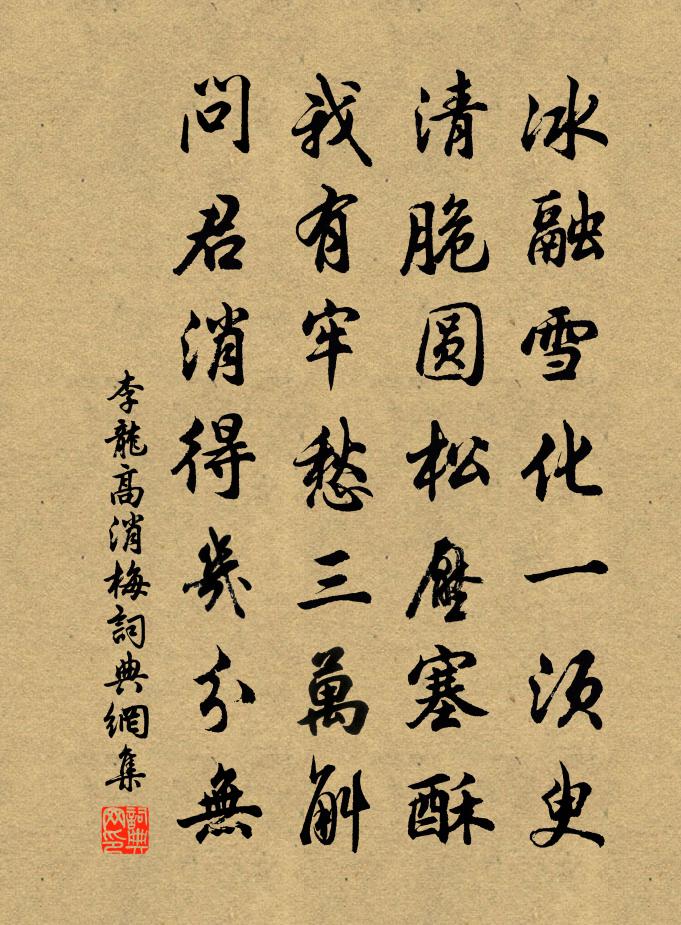 冰融雪化一须臾
清脆圆松压塞酥
我有牢愁三萬斛
問君消得幾分無
李龍高消梅詞典網集
詞典网印